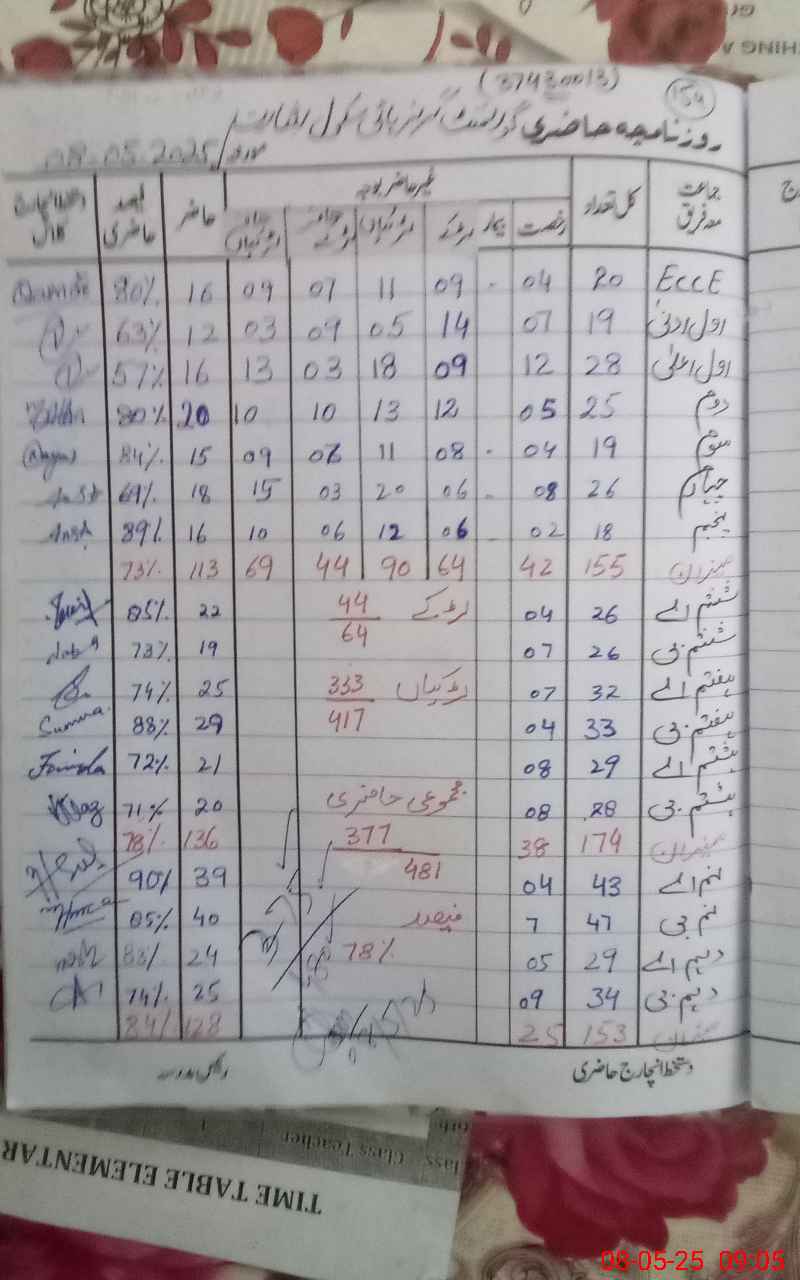 (37430013)
154
روزنامچہ حاضری گورنمنٹ گرلز ہائی سکول
مورخہ 08-05-2025
جماعت معہ فریق کل تعداد غیر حاضر بوجہ حاضر فیصد حاضری دستخط انچارج کلاس
رخصت بیمار لڑکے لڑکیاں حاضر لڑکے حاضر لڑکیاں
ECCE 20 04 - 09 11 07 09 16 80%
اول ادنیٰ 19 07 14 05 09 03 12 63%
اول اعلیٰ 28 12 09 18 03 13 16 57%
دوم 25 05 12 13 10 10 20 80%
سوم 19 04 - 08 11 06 09 15 84%
چہارم 26 08 - 06 20 03 15 18 69%
پنجم 18 02 - 06 12 06 10 16 89%
میزان 155 42 64 90 44 69 113 73%
ششم اے 26 04 لڑکے 44/64 22 85%
ششم بی 26 07 19 73%
ہفتم اے 32 07 لڑکیاں 333/417 25 74%
ہفتم بی 33 04 29 88% Summa
ہشتم اے 29 08 21 72%
ہشتم بی 28 08 مجموعی حاضری 20 71%
میزان 174 38 377/481 136 78%
نہم اے 43 04 39 90%
نہم بی 47 7 فیصد 40 85%
دہم اے 29 05 78% 24 83%
دہم بی 34 09 25 74%
میزان 153 25 128 84%
دستخط انچارج حاضری
TIME TABLE ELEMENTAR
Class Teacher
08-05-25 09:05